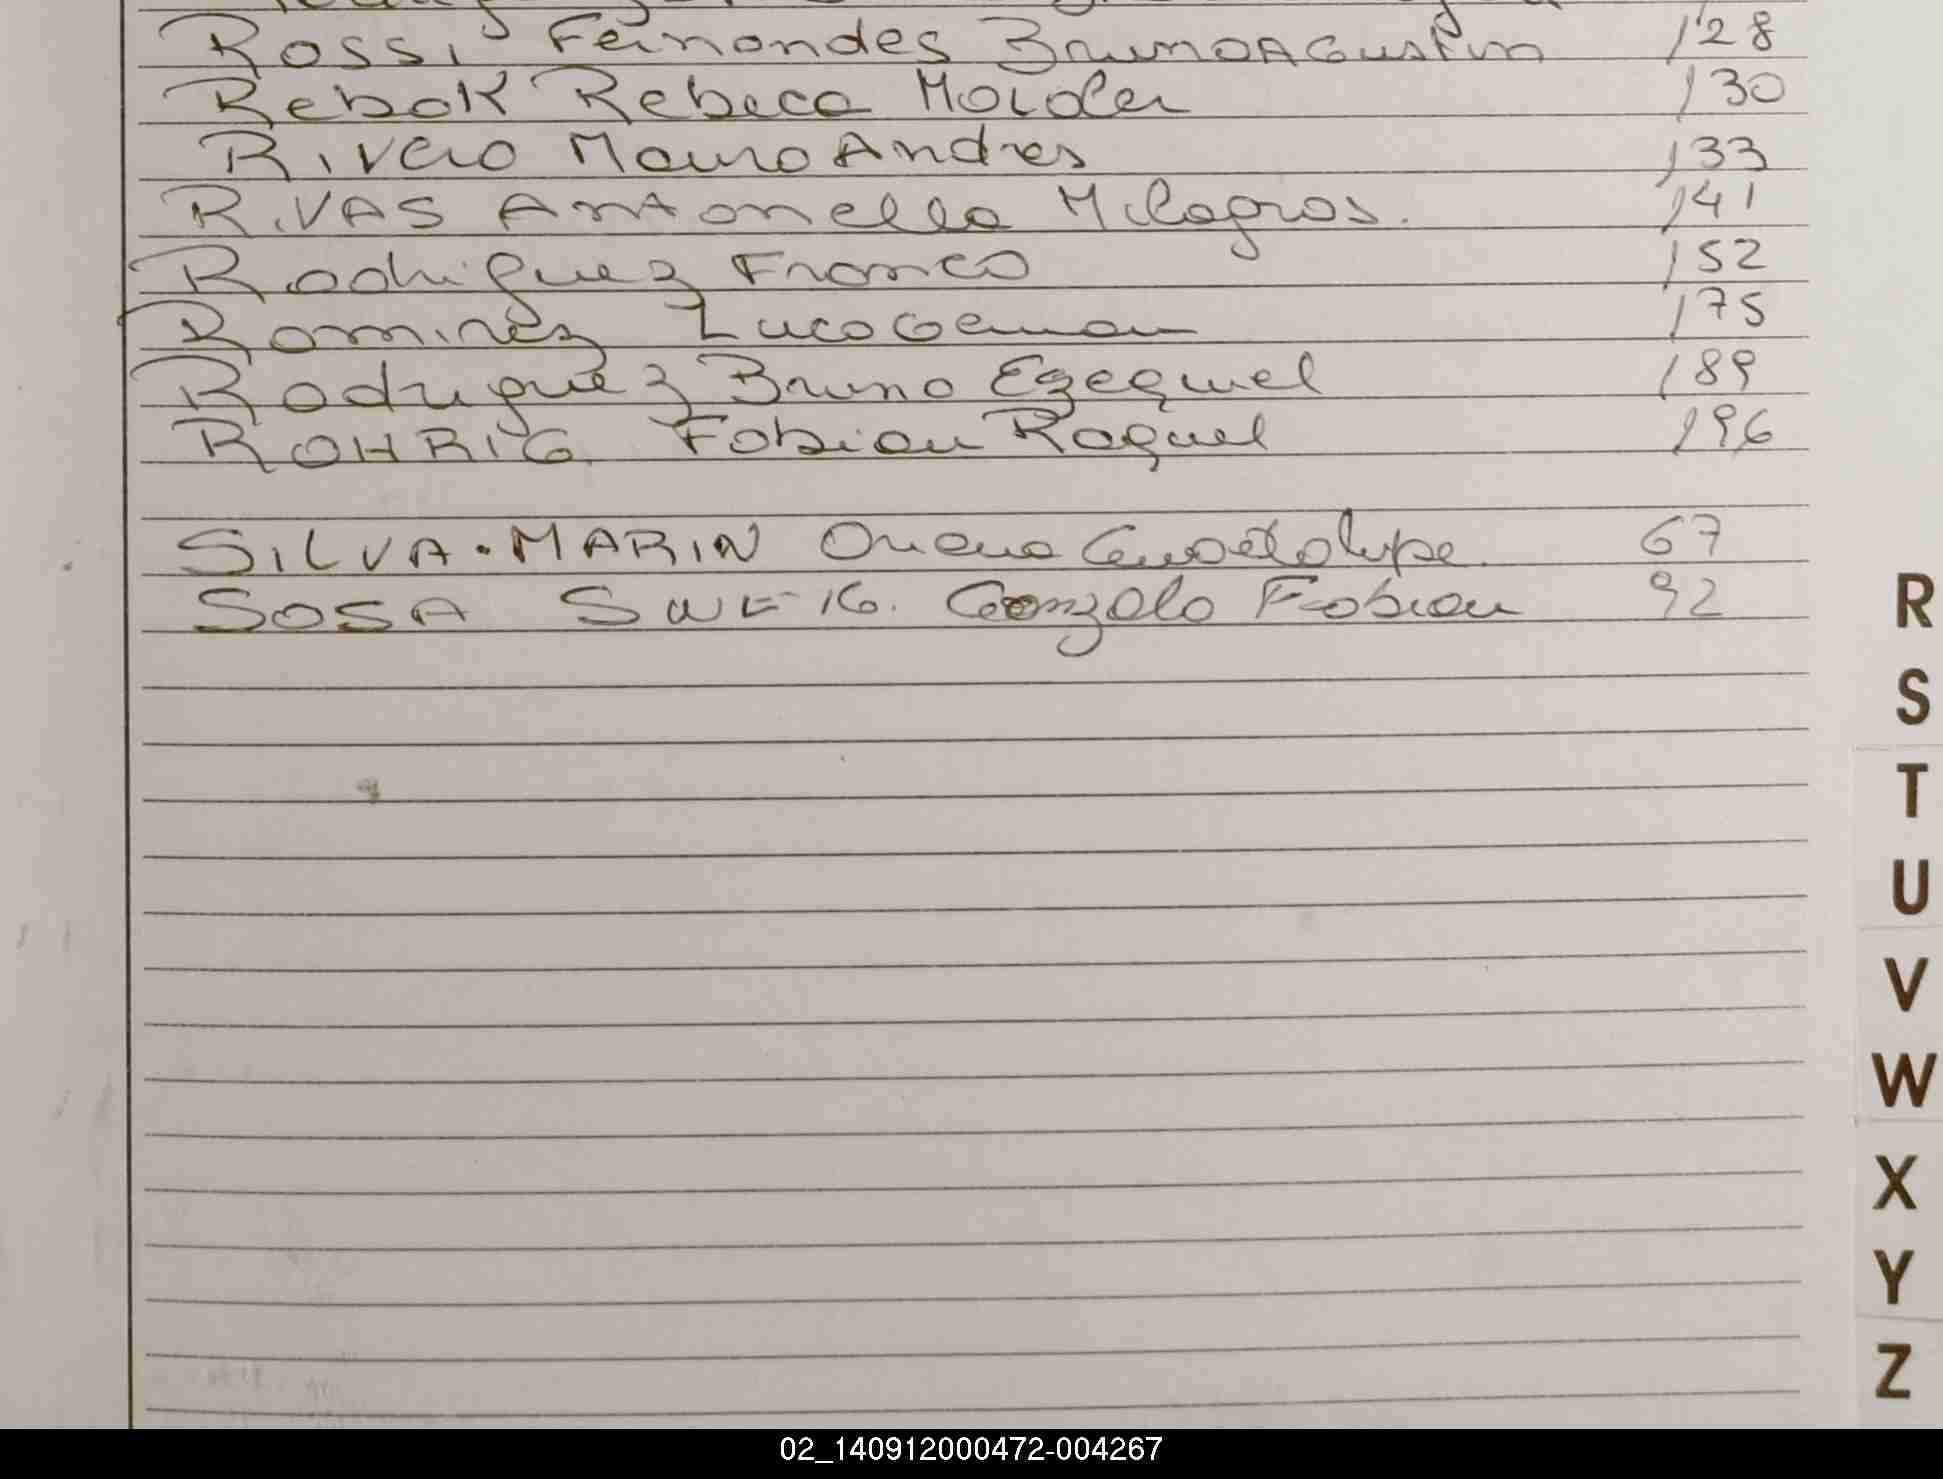 Rossi Fernandes Bruno Agustin 128
Rebok Rebeca 130
Rivero Mauro Andres 133
RiVAS Antonella Milagros. 141
Rodriguez Franco 152
Ramirez Luca German 175
Rodriguez Bruno Ezequiel 189
ROHRIG Fabian Raquel 196
SILVA-MARIN Oriana Guadalupe 67
SOSA Gonzalo Fabian 92
R
S
T
U
V
W
X
Y
Z
02_140912000472-004267